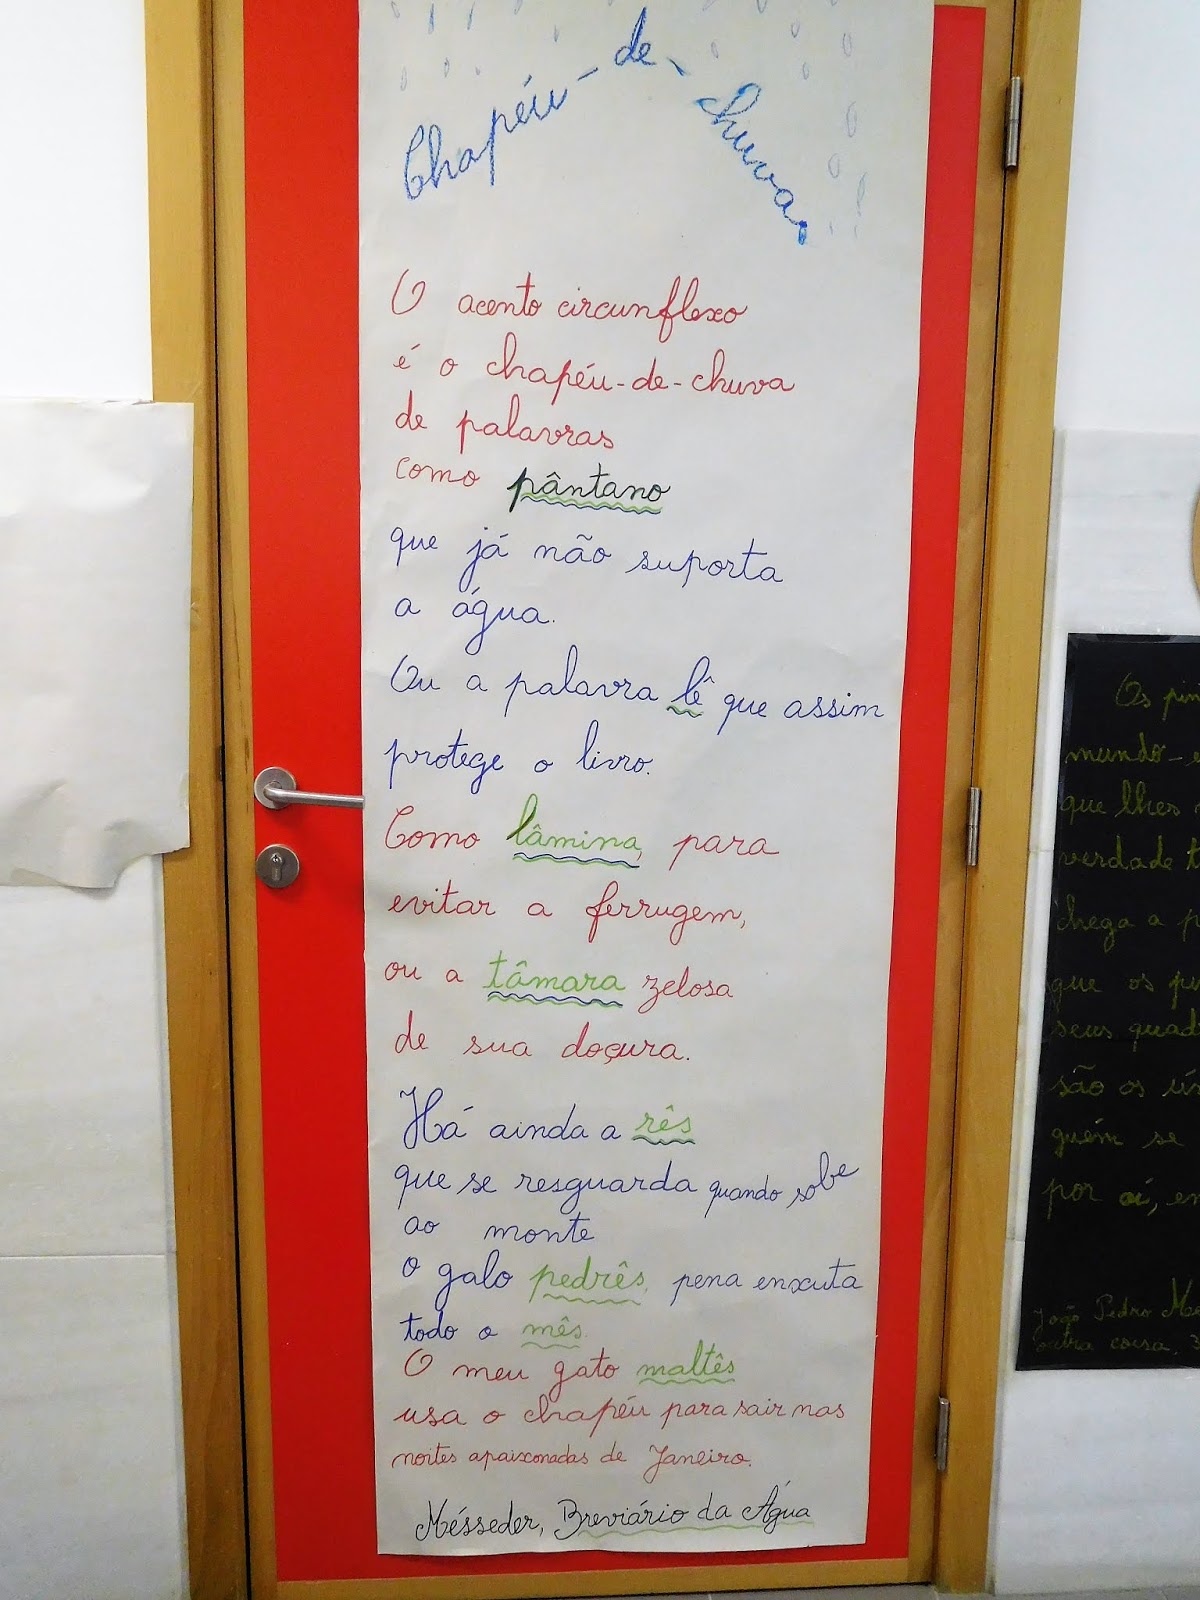 Chapéu-de-chuva
O acento circunflexo
é o chapéu-de-chuva
de palavras
como pântano
que já não suporta
a água.
Ou a palavra lê que assim
protege o livro.
Como lâmina, para
evitar a ferrugem,
ou a tâmara zelosa
de sua doçura.
Há ainda a rês
que se resguarda quando sobe
ao monte
o galo pedrês, pena enxuta
todo o mês.
O meu gato maltês
usa o chapéu para sair nas
noites apaixonadas de Janeiro.
Mésseder, Breviário da Água
Os
mundo-
que lhes
verdade
chega a
que os
seus
são os
guém se
por aí,
João Pedro
outra coisa,